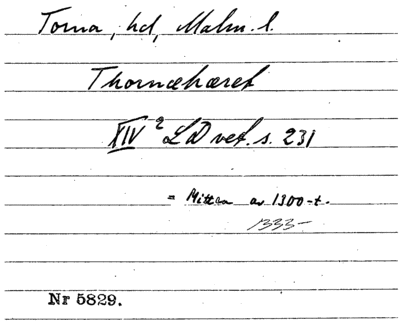 Torna, hd, Malm. l.
Thornæhæret
XIV 2 LD vet. s. 231
= Mitten av 1300-t.
1333-
Nr 5829.